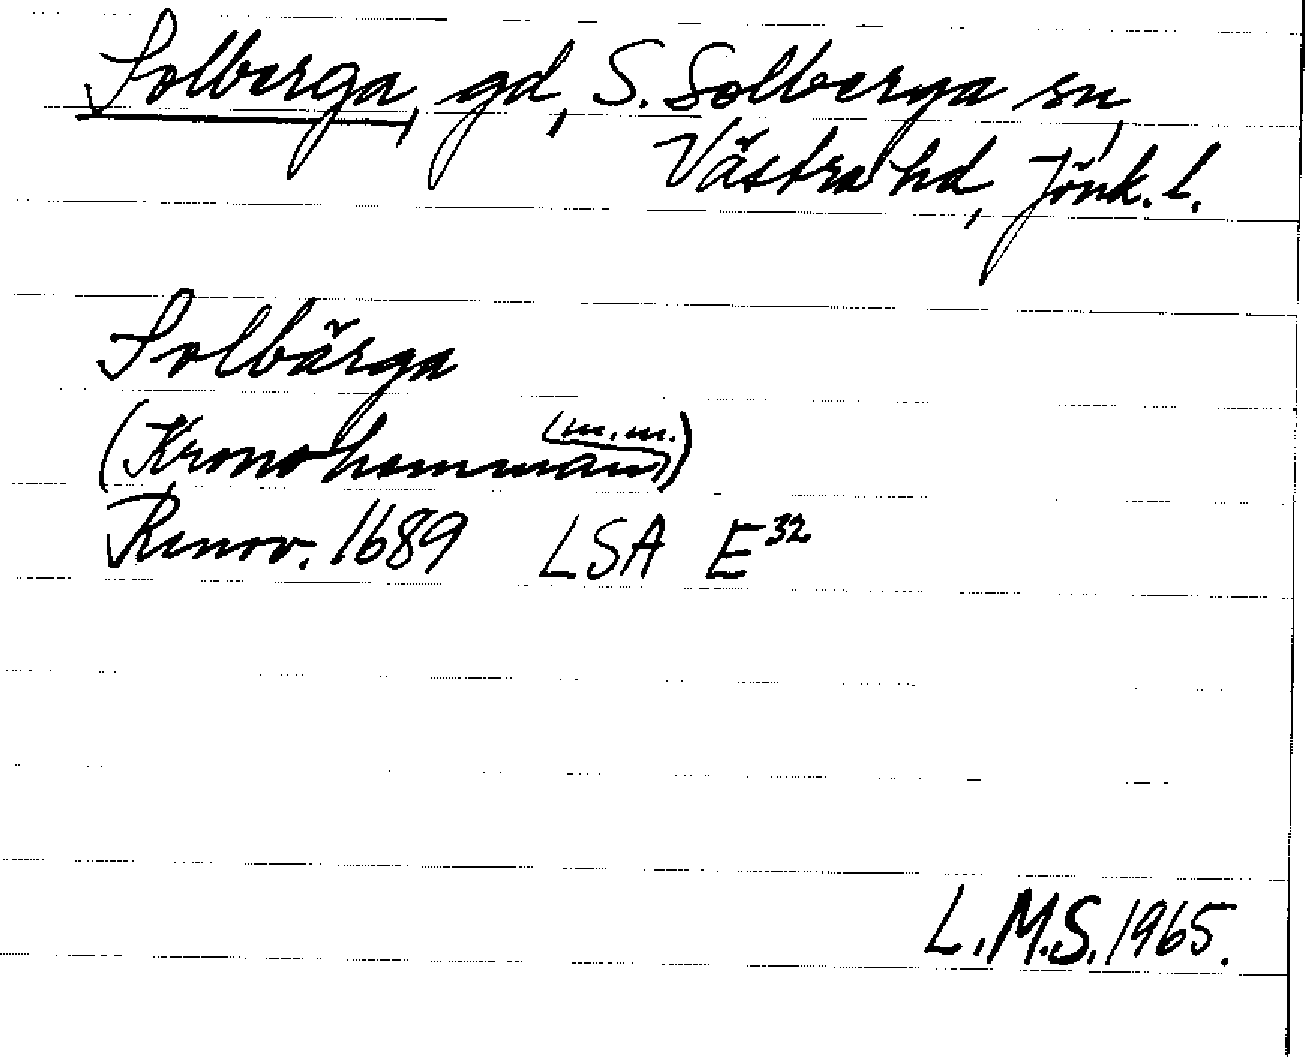 Solberga, gd, S. Solberga sn,
Västra hd, Jönk. l.
Solbärga
(Kronohemman (m.m.))
Renov. 1689 LSA E 32
L.M.S. 1965.